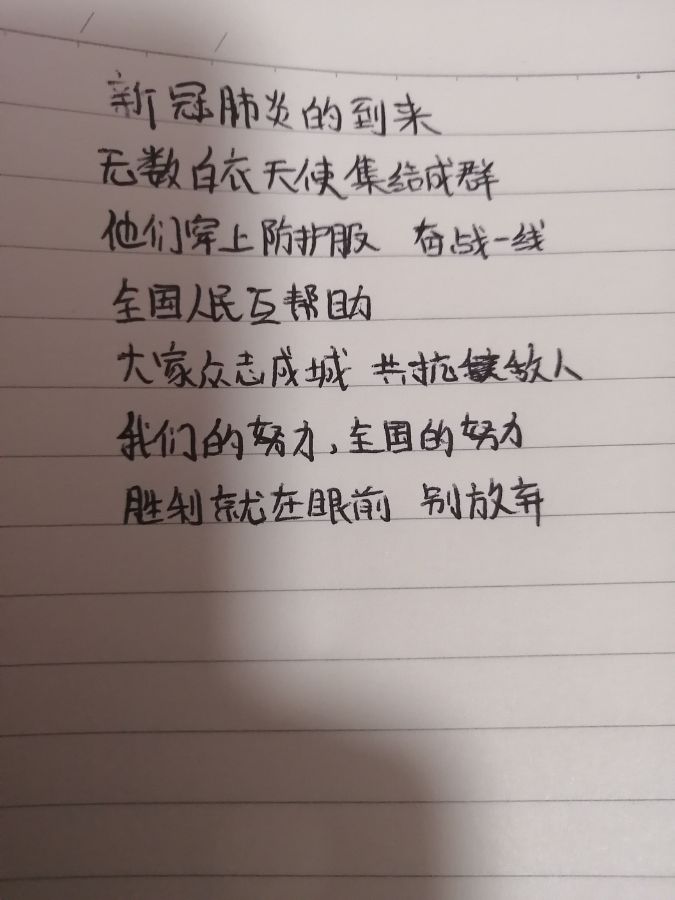 新冠肺炎的到来
无数白衣天使集结成群
他们穿上防护服 奋战一线
全国人民互帮助
大家众志成城 共抗敌人
我们的努力,全国的努力
胜利就在眼前 别放弃